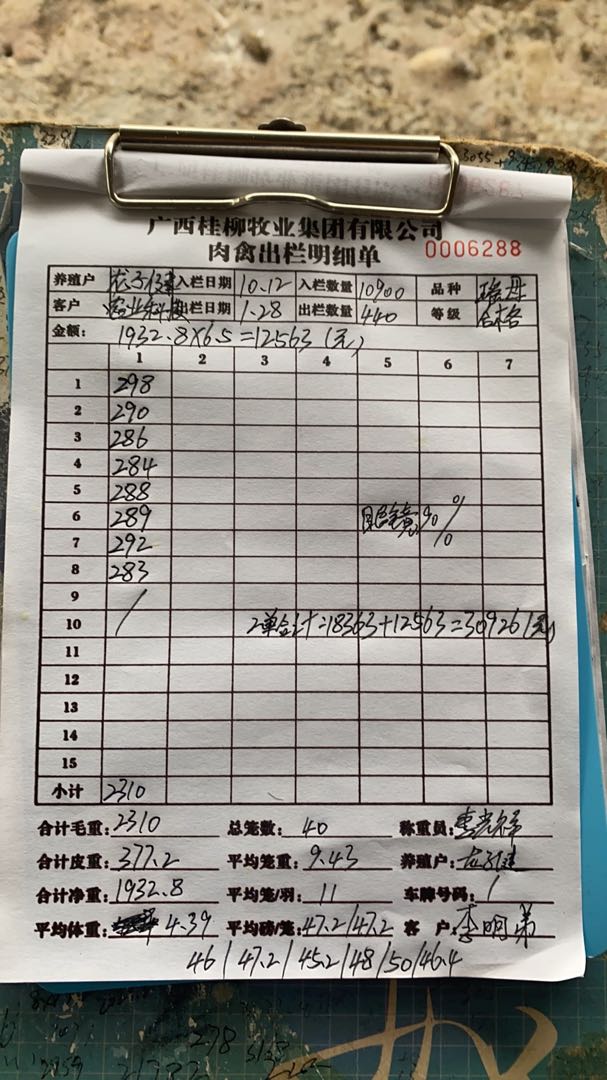 广西桂柳牧业集团有限公司
肉禽出栏明细单 0006288
养殖户 入栏日期 10.12 入栏数量 10900 品种
客户 出栏日期 1.28 出栏数量 440 等级 合格
金额: 1932.8×6.5=12563(元)
1 2 3 4 5 6 7
1 298
2 290
3 286
4 284
5 288
6 289 90%
7 292 %
8 283
9 /
10 2单合计=18363+12563=30926(元)
11
12
13
14
15
小计 2310
合计毛重: 2310 总笼数: 40 称重员:
合计皮重: 377.2 平均笼重: 9.43 养殖户:
合计净重: 1932.8 平均笼/羽: 11 车牌号码: /
平均体重: 4.39 平均磅/笼: 47.2/47.2 客户: 李明弟
46/47.2/45.2/48/50/46.4